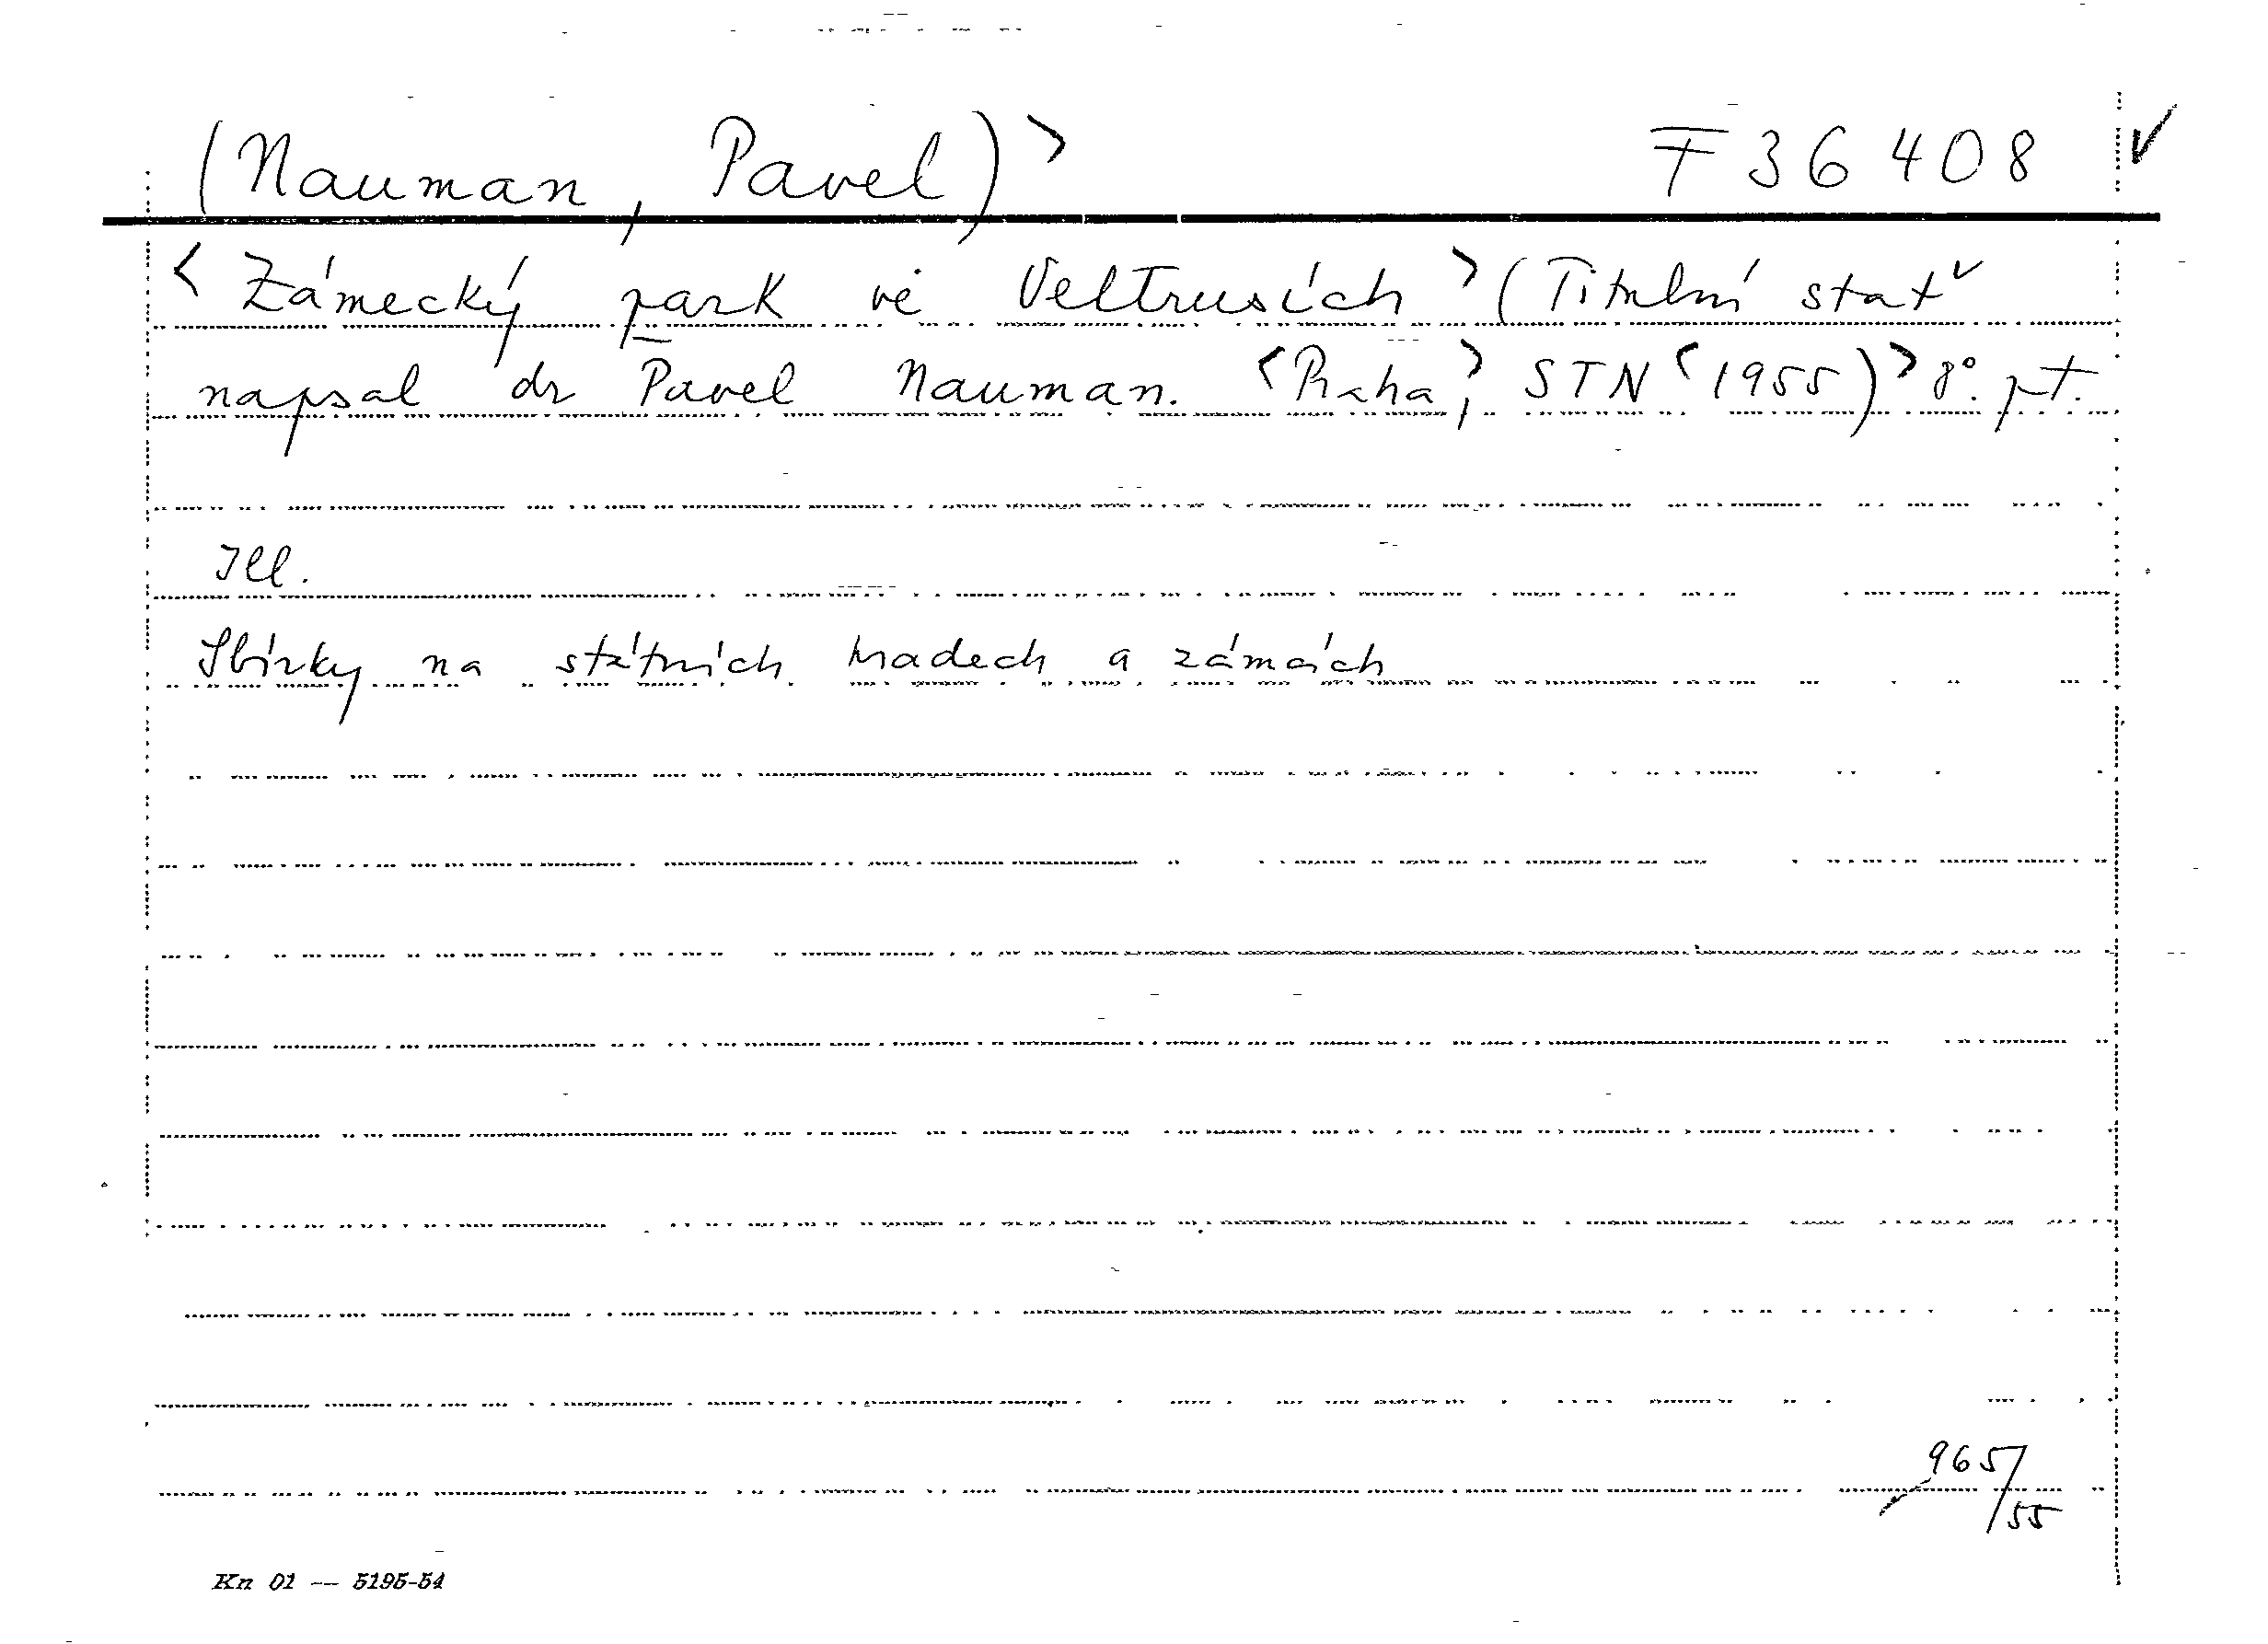 (Nauman, Pavel)> F 36408 ✓
<Zámecký park ve Veltrusích> (Titulní stať
napsal dr Pavel Nauman. <Praha,> STN <(1955)> 8°. pt.
Ill.
Sbírky na státních hradech a zámcích
965/55
Kn 01 — 5195-54